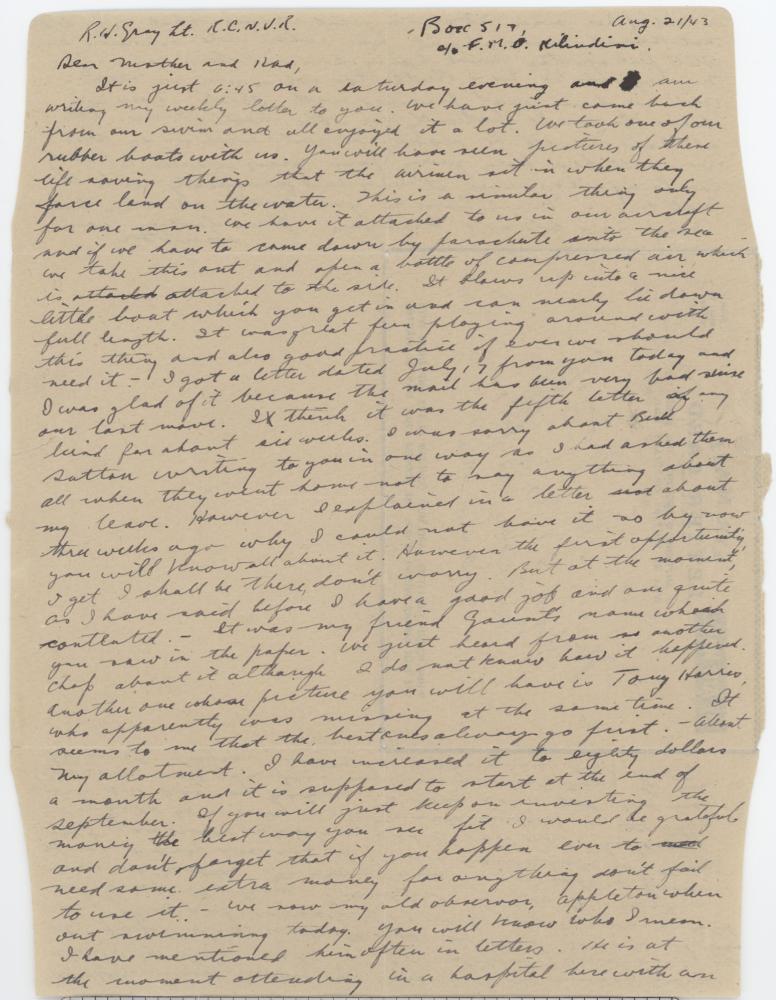 R.H. Gray Lt. R.C.N.V.R.
Box 517,
c/o F.M.O. Kilindini.
Aug. 21/43
Dear Mother and Dad,
It is just 6:45 on a Saturday evening and I am
writing my weekly letter to you. We have just come back
from our swim and all enjoyed it a lot. We took one of our
rubber boats with us. You will have seen pictures of these
life saving things that the airmen sit in when they
force land on the water. This is a similar thing only
for one man. We have it attached to us in our aircraft
and if we have to come down by parachute onto the sea
we take this out and open a bottle of compressed air which
is attached attached to the side. It blows up into a nice
little boat which you get in and can nearly lie down
full length. It was great fun playing around with
this thing and also good practice if ever we should
need it - I got a letter dated July 17 from you today and
I was glad of it because the mail has been very bad since
our last move. I think it was the fifth letter of any
kind for about six weeks. I was sorry about Bill
Sutton writing to you in one way as I had asked them
all when they went home not to say anything about
my leave. However I explained in a letter about
three weeks ago why I could not have it so by now
you will know all about it. However the first opportunity
I get I shall be there, don't worry. But at the moment,
as I have said before I have a good job and am quite
contented. - It was my friend Gaunt's name which
you saw in the paper. We just heard from another
chap about it although I do not know how it happened.
Another one whose picture you will have is Tony Harris,
who apparently was missing at the same time. It
seems to me that the best ones always go first. - About
my allotment. I have increased it to eighty dollars
a month and it is supposed to start at the end of
September. If you will just keep on investing the
money the best way you see fit I would be grateful
and don't forget that if you happen ever to need
need some extra money for anything don't fail
to use it. - We saw my old observor, Appleton when
out swimming today. You will know who I mean.
I have mentioned him often in letters. He is at
the moment attending in a hospital here with an